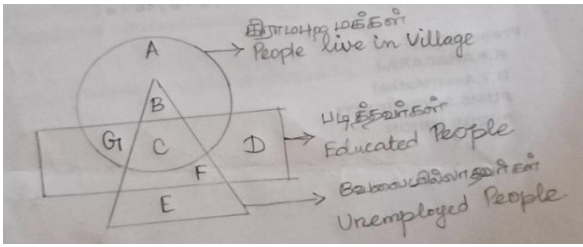 கிராமபுற மக்கள்
A
People live in Village
B
படித்தவர்கள்
G
C
D
Educated People
F
வேலையில்லாதவர்கள்
E
Unemployed People